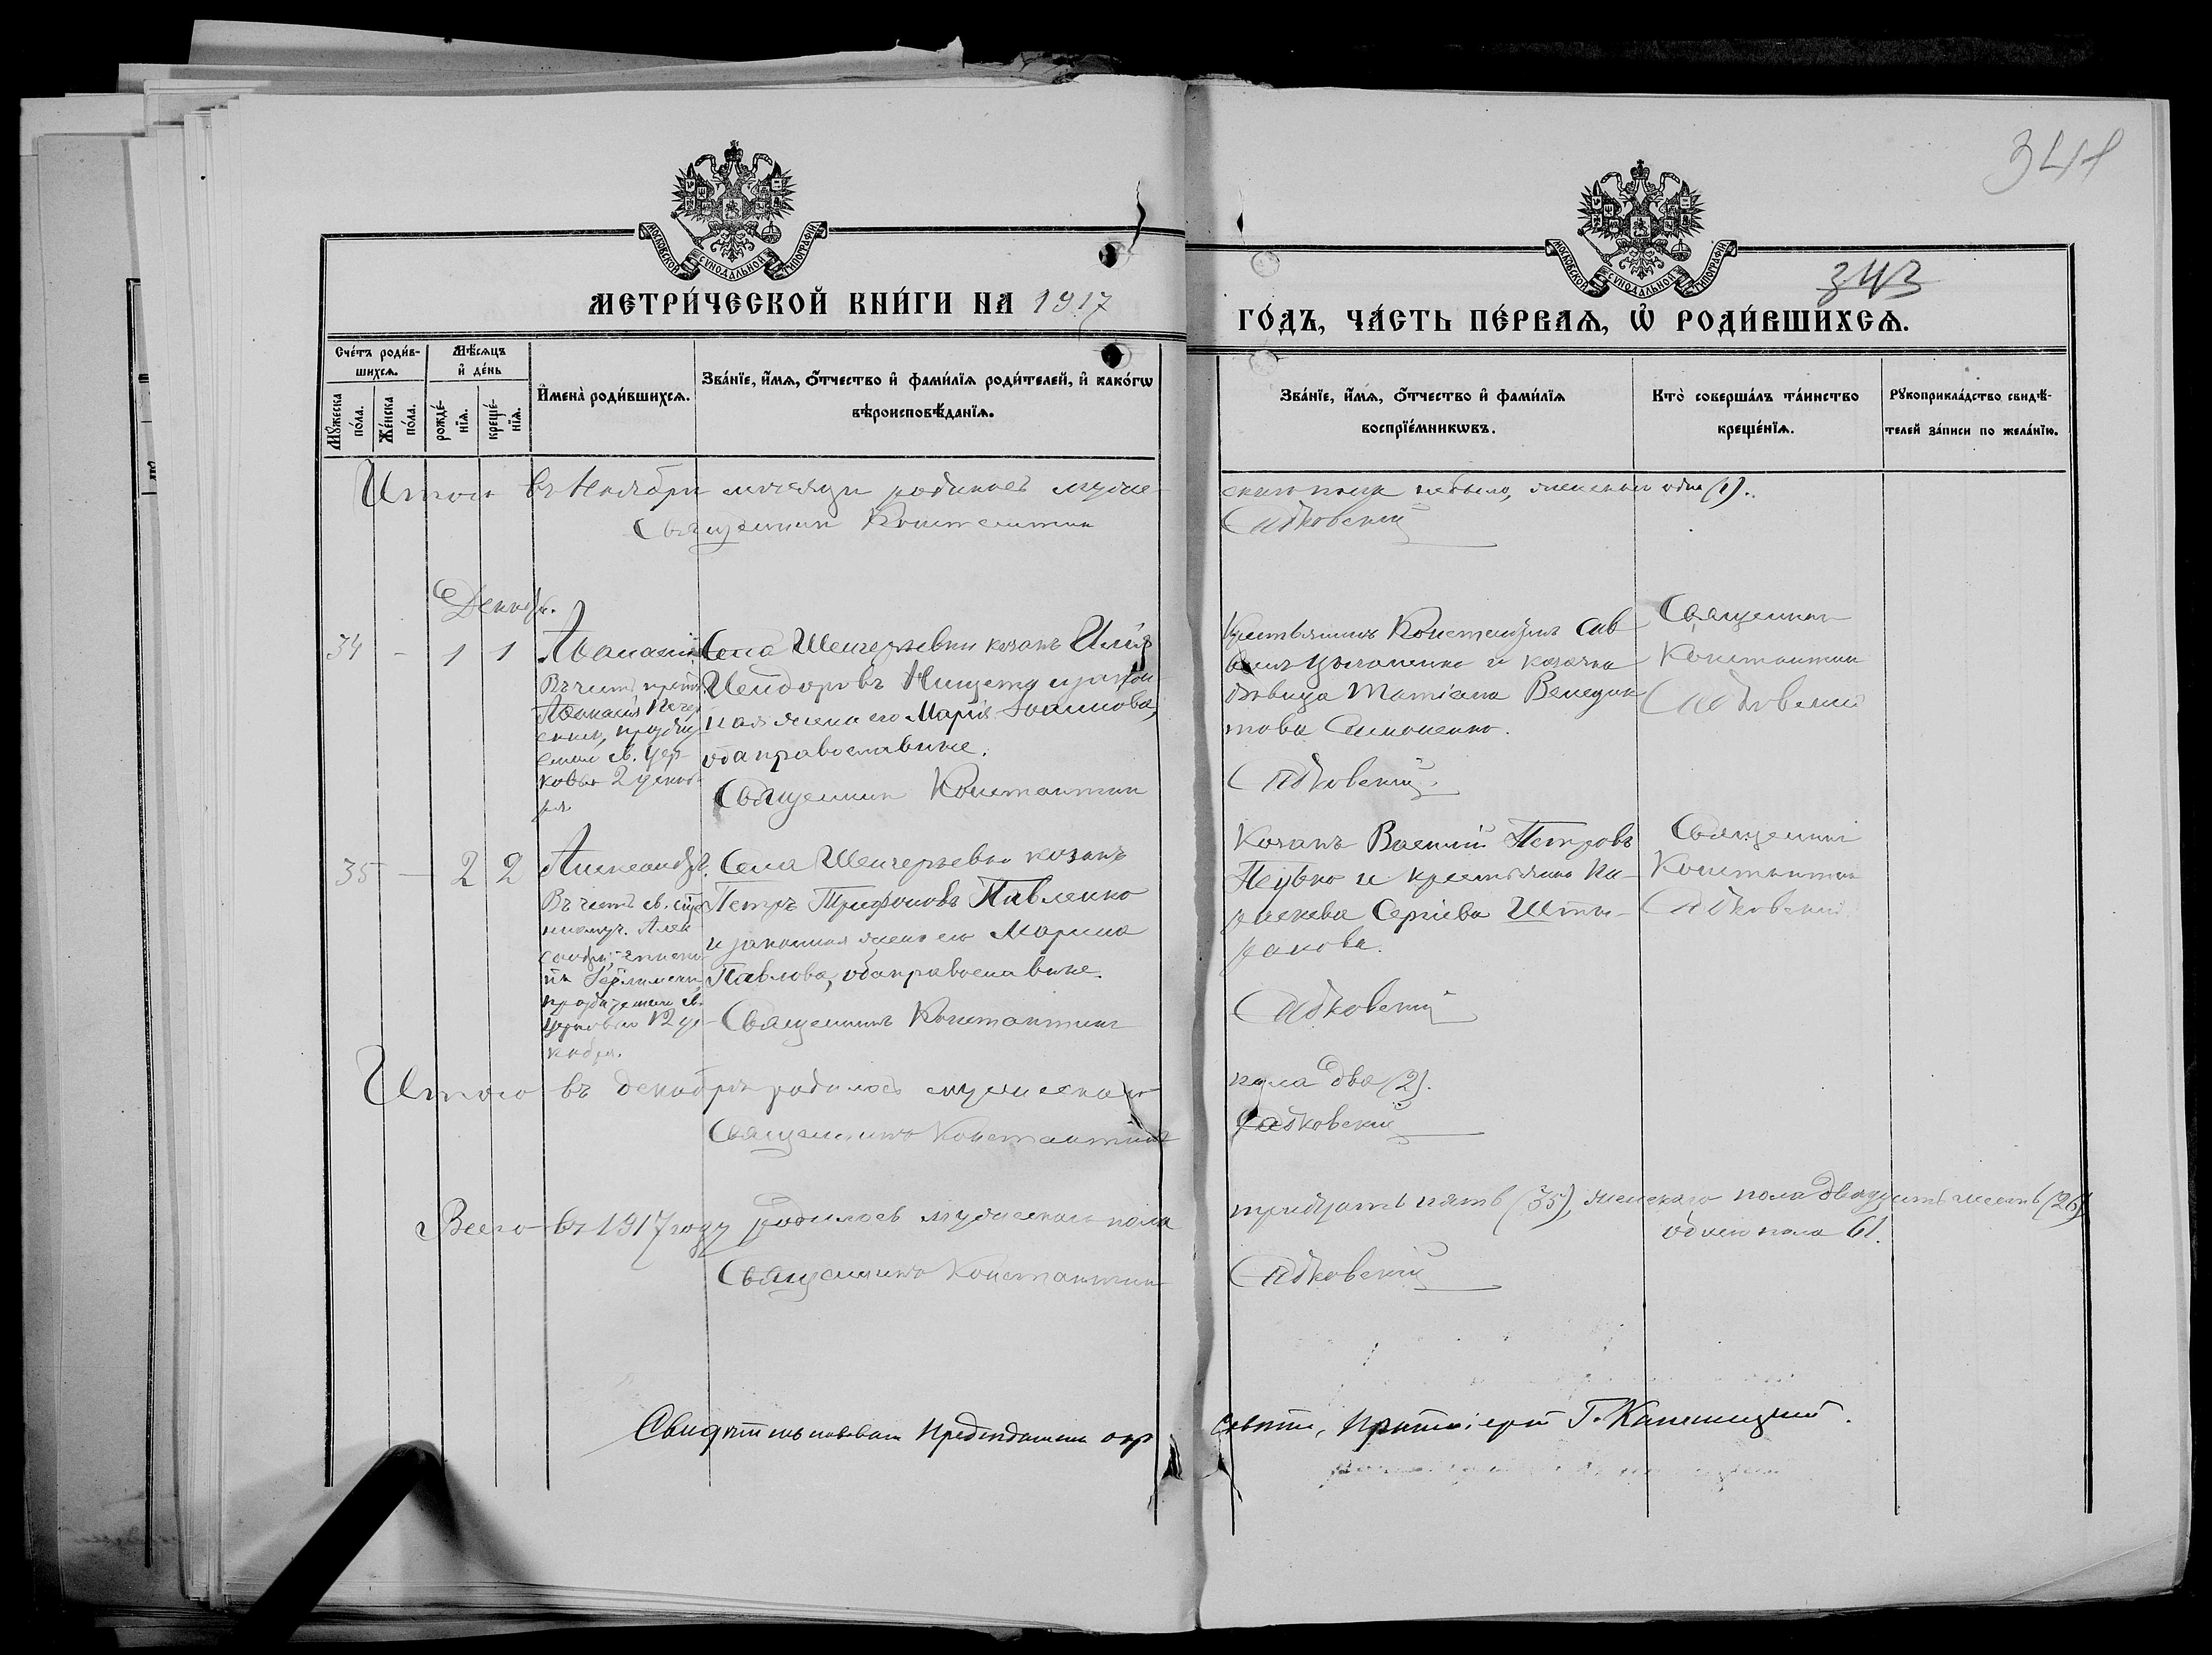 341
343
МОСКОВСКОЙ СѴНОДАЛЬНОЙ ТИПОГРАФІИ
МОСКОВСКОЙ СѴНОДАЛЬНОЙ ТИПОГРАФІИ
МЕТРИ́ЧЕСКОЙ КНИ́ГИ НА 1917
ГО́ДЪ, ЧА́СТЬ ПЕ́РВАѦ, Ѡ҆ РОДИ́ВШИХСѦ.
Сче́тъ роди́в-
шихсѧ.
Мѣ́сѧцъ
и҆ де́нь
Мꙋ́жеска
по́ла.
Же́нска
по́ла.
рожде́-
нїѧ.
креще́-
нїѧ.
И҆мена̀ роди́вшихсѧ.
Зва́нїе, и҆́мѧ, ѻ҆́тчество и҆ фами́лїѧ роди́телей, и҆ како́гѡ
вѣроисповѣ́данїѧ.
Зва́нїе, и҆́мѧ, ѻ҆́тчество и҆ фами́лїѧ
воспрїе́мникѡвъ.
Кто̀ соверша́лъ та́инство
креще́нїѧ.
Рꙋкоприкла́дство свидѣ́-
телей за́писи по жела́нїю.
Итого въ Ноябрѣ мѣсяцѣ родилось муже-
скаго пола небыло, женскаго одна (1).
Священникъ Константинъ
Садковскій
Декабрь.
34 - 1 1
Аѳанасій
Въ честь
Аѳанасія Печер
скаго,
св. цер
ковью 2 декаб
ря
Села Шечерзевки козакъ Илія
Исидоровъ Нищета и закон
ная жена его Марія Іоаннова,
оба православные.
Священникъ Константинъ
Крестьянинъ Константинъ Сав
и козачка
дѣвица Татіана Венедик
това Симоненко.
Садковскій
Священникъ
Константинъ
Садковскій
35 - 2 2
Александръ.
Въ честь св. свяще
номуч. Алек
сандра, еписко
па Іерусалимск
празднуемаго св.
церковью 12 де
кабря.
Села Шечерзевки козакъ
Петръ Трифоновъ Павленко
и законная жена его Марина
Павлова, оба православные.
Священникъ Константинъ
Козакъ Василій Петровъ
и крестьянка Па-
раскева Сергіева
Садковскій
Священникъ
Константинъ
Садковскій
Итого въ декабрѣ родилось мужескаго
пола два (2).
Священникъ Константинъ
Садковскій
Всего въ 1917 году родилось мужескаго пола
тридцать пять (35), женскаго пола двадцать шесть (26)
обоего пола 61.
Священникъ Константинъ
Садковскій
Свидѣтельствовалъ Предсѣдатель окр
совѣта, Протоіерей Г.